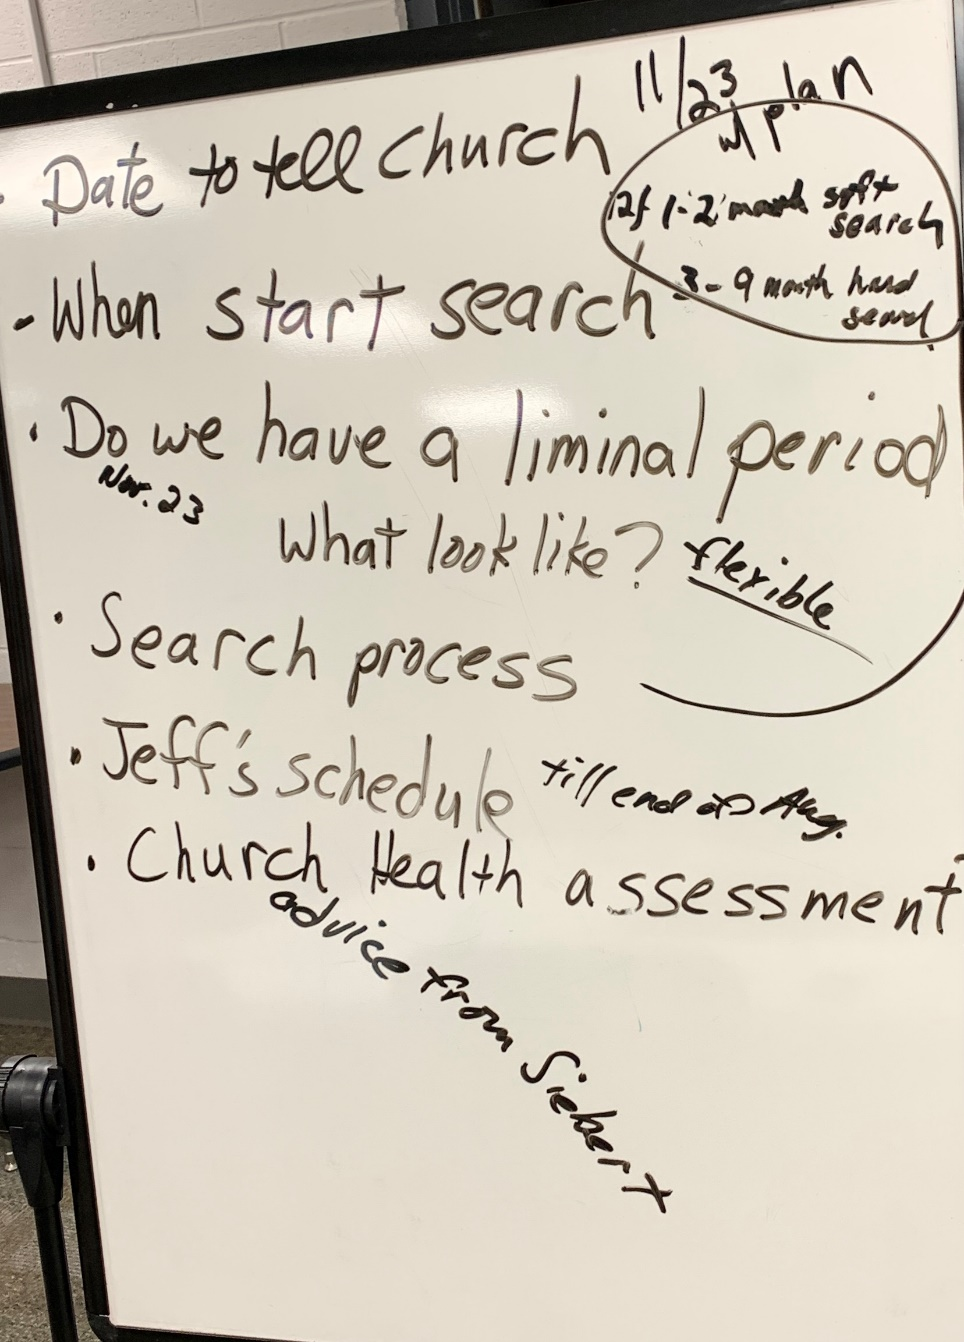 · Date to tell church 11/23
w/ plan
1-2 month soft
search
- When start search
3-9 month hard
search
· Do we have a liminal period
Nov. 23
What look like? flexible
· Search process
· Jeff's schedule till end of Aug.
· Church Health assessment
advice from Siebert